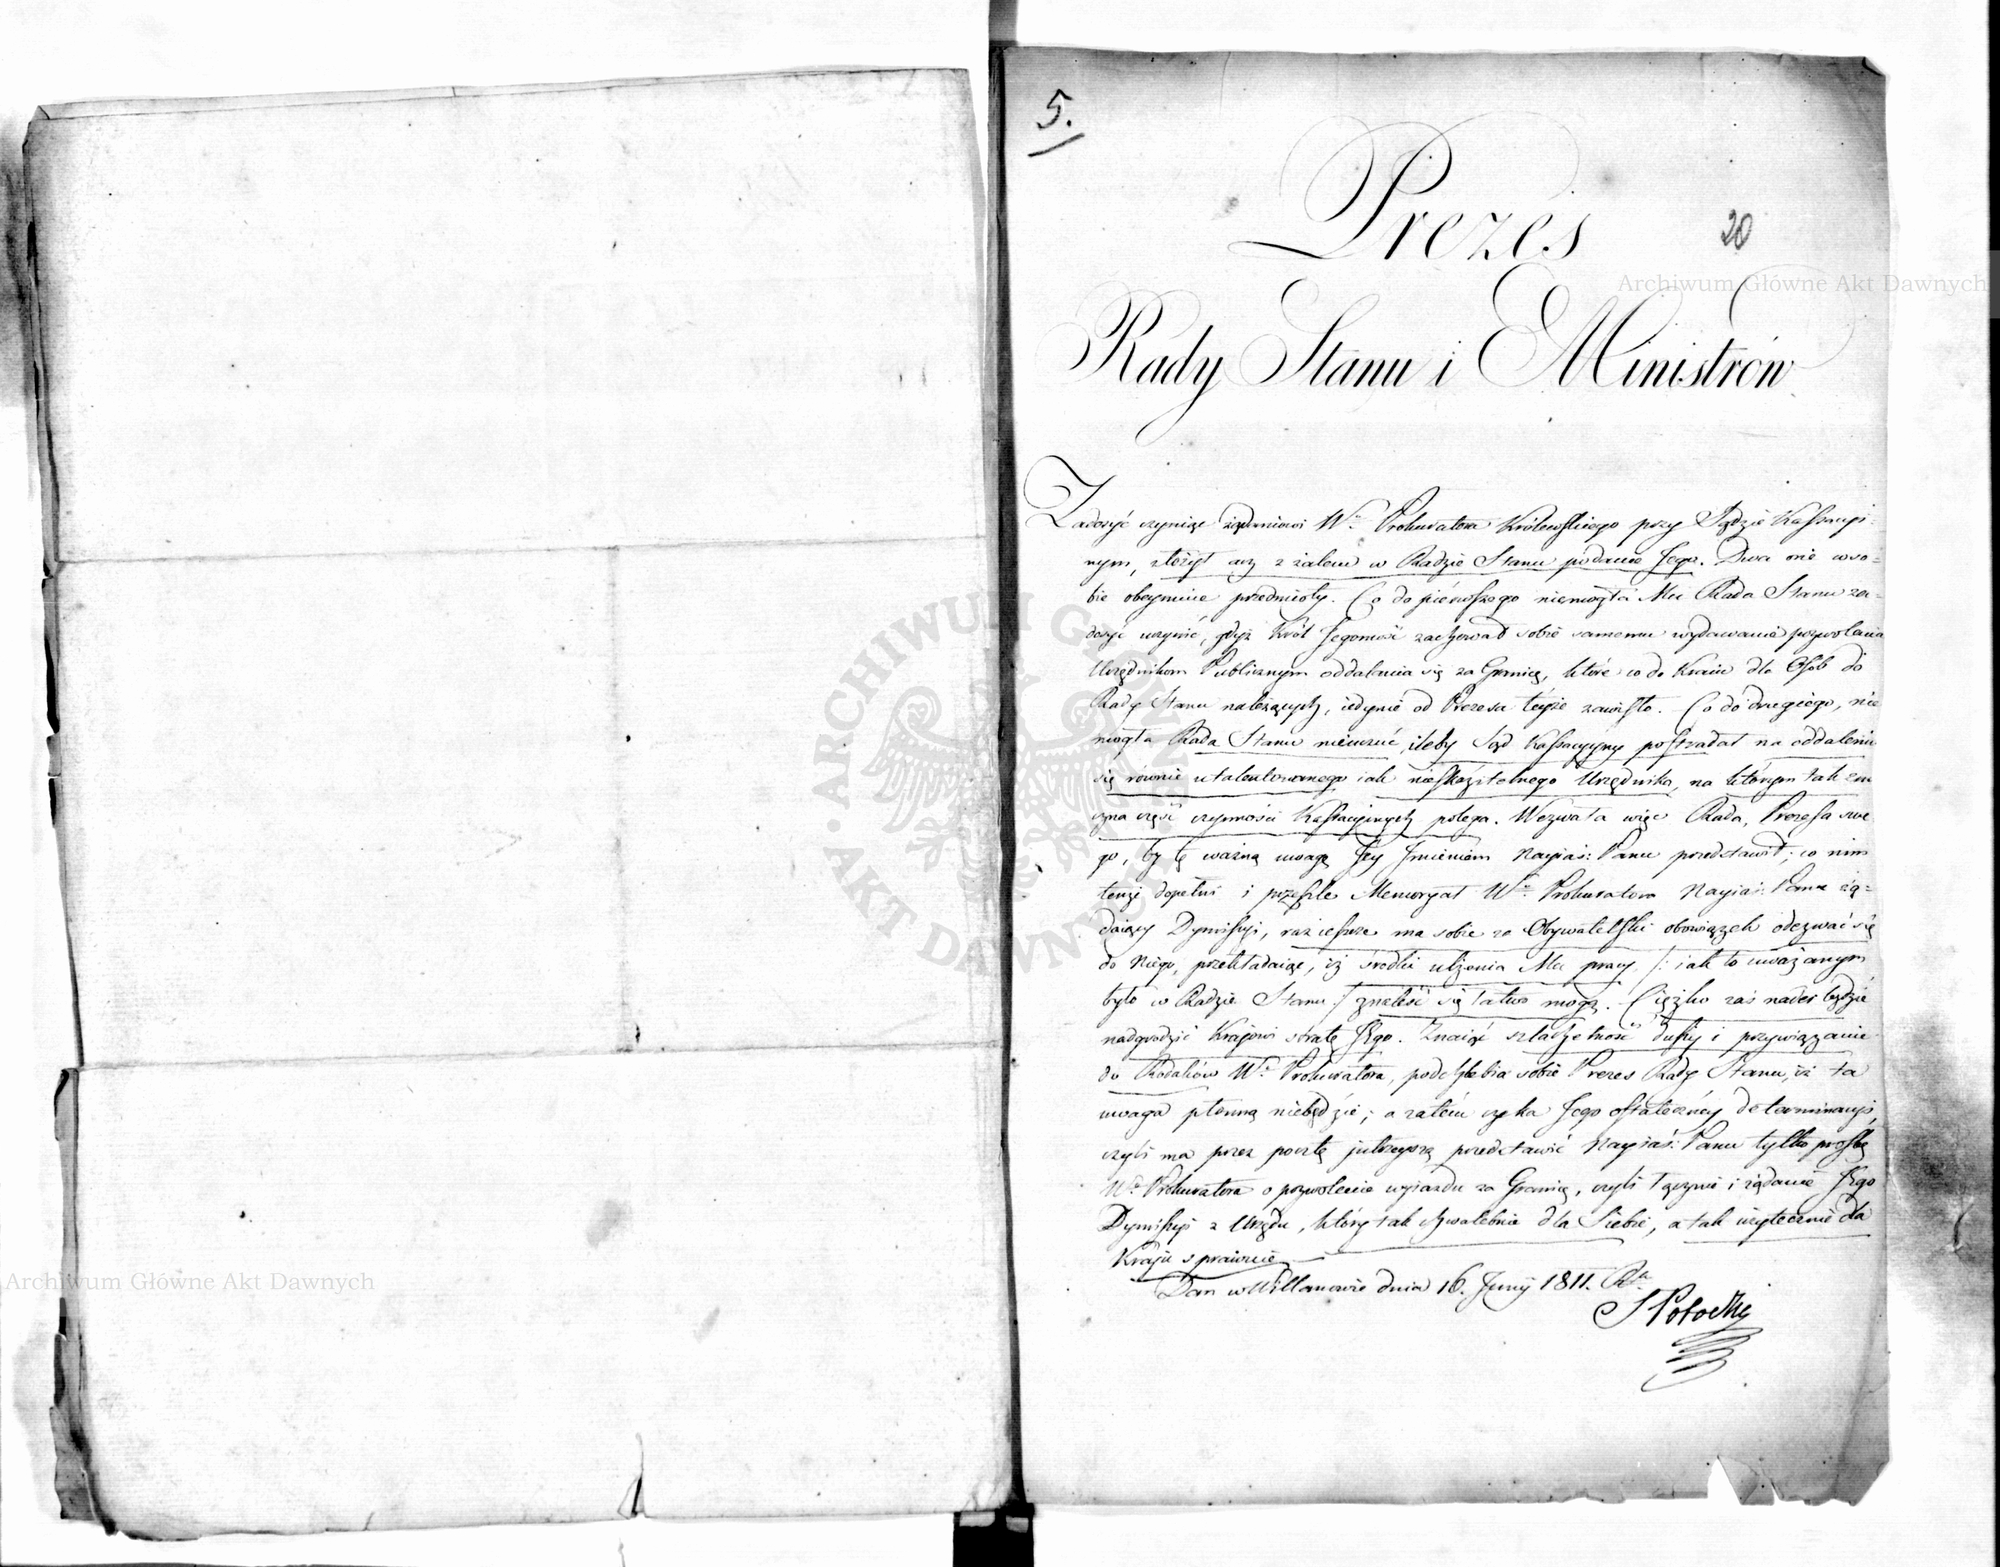 5.
20
Prezes
Rady Stanu i Ministrów
Zadosyć czyniąc żądaniowi Wo. Prokuratora Królewskiego przy Sądzie Kassacyi-
nym, złożył acz z żalem w Radzie Stanu podanie Jego. Dwa one w so-
bie obeymuie przedmioty. Co do pierwszego niemogła Mu Rada Stanu za-
dosyć uczynić, gdyż Król Jegomość zachował sobie samemu wydawanie pozwolenia
Urzędnikom Publicznym oddalenia się za Granicę, które co do Kraiu dla Osób do
Rady Stanu należących, iedynie od Prezesa teyże zawisło. Co do drugiego, nie
mogła Rada Stanu nieczuć, ileby Sąd Kassacyjny postradał na oddaleniu
się równie utalentowanego iak nieskazitelnego Urzędnika, na którym tak zna
czna część czynności Kassacyinych polega. Wezwała więc Rada, Prezesa swe
go, by tę ważną uwagę Jey Imieniem Nayiaś: Panu przedstawił; co nim
tenże dopełni i prześle Memoryał Wo. Prokuratora Nayiaś: Panu żą-
daiący Dymissyi, raz ieszcze ma sobie za Obywatelski obowiązek odezwać się
do Niego, przekładaiąc, iż środki ulżenia Mu pracy /: iak to uważanym
było w Radzie Stanu :/ znaleść się łatwo mogą. Ciężko zaś nader będzie
nadgrodzić Krajowi stratę Jego. Znaiąc szlachetność duszy i przywiązanie
do Rodaków Wo. Prokuratora, podchlebia sobie Prezes Rady Stanu, iż ta
uwaga płonną niebędzie; a zatem czeka Jego ostateczney determinacyi,
czyli ma przez pocztę jutrzeyszą przedstawić Nayiaś: Panu tylko prośbę
Wo. Prokuratora o pozwolenie wyiazdu za Granicę, czyli łącznie i żądanie Jego
Dymissyi z Urzędu, który tak chwalebnie dla Siebie, a tak użytecznie dla
Kraju sprawuie.
Dan w Willanowie dnia 16. Junij 1811. Rku.
S Potocki
ARCHIWUM GŁÓWNE • AKT DAWNYCH •
Archiwum Główne Akt Dawnych
Archiwum Główne Akt Dawnych